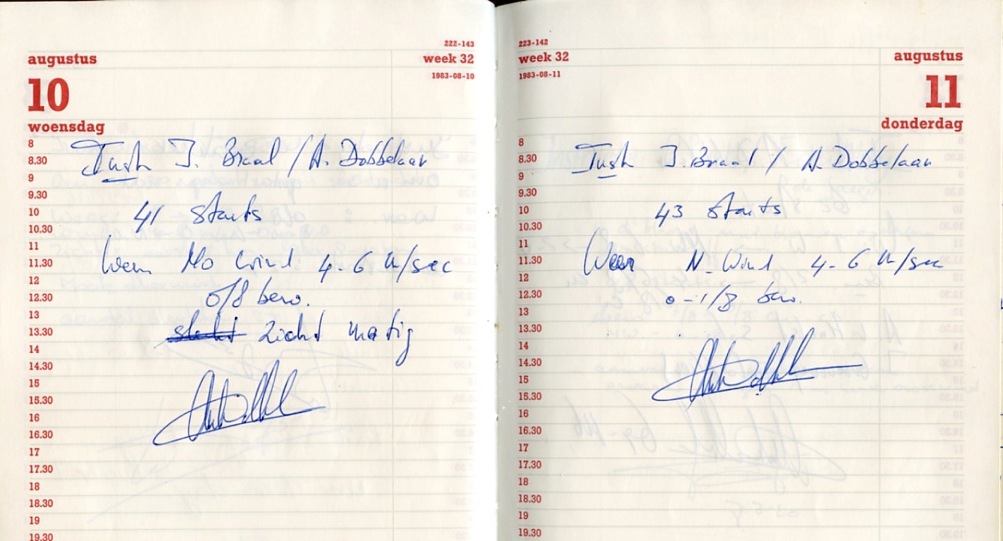 222-143
augustus
week 32
10
1983-08-10
woensdag
8
8.30
9
9.30
10
10.30
11
11.30
12
12.30
13
13.30
14
14.30
15
15.30
16
16.30
17
17.30
18
18.30
19
19.30
Instr J. Braal / A. Dobbelaar
41 starts
Weer NO wind 4-6 m/sec
0/8 bew.
slecht zicht matig
223-142
week 32
augustus
1983-08-11
11
donderdag
8
8.30
9
9.30
10
10.30
11
11.30
12
12.30
13
13.30
14
14.30
15
15.30
16
16.30
17
17.30
18
18.30
19
19.30
Instr J. Braal / A. Dobbelaar
43 starts
Weer N. Wind 4-6 m/sec
0-1/8 bew.